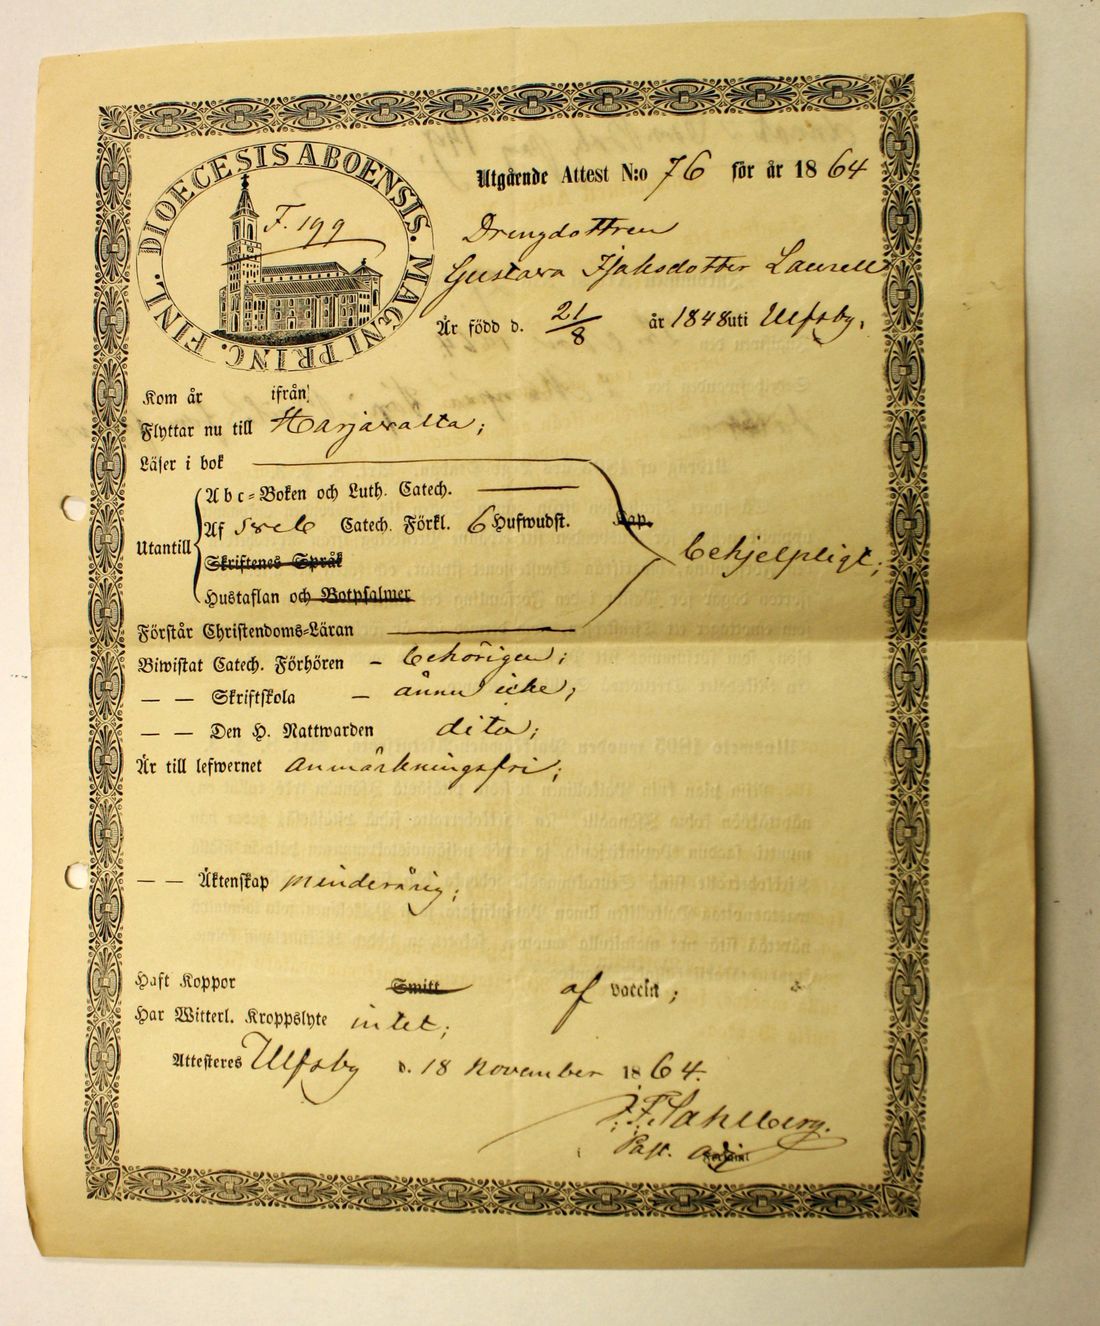 DIOECESIS ABOENSIS. MAGNI PRINC. FINL.
F. 199
Utgående Attest N:o 76 för år 1864
Drengdottren
Gustava Isaksdotter Laurell
Är född d. 21/8 år 1848 uti Ulfsby,
Kom år ifrån
Flyttar nu till Harjavalta;
Läser i bok
Abc-Boken och Luth. Catech.
Af Catech. Förkl. 6 Hufwudst. Kap.
Utantill behjelpligt;
Skriftenes Språk
Hustaflan och Botpsalmer
Förstår Christendoms-Läran
Biwistat Catech. Förhören – behörigen;
— — Skriftskola – ännu icke;
— — Den H. Nattwarden dito;
Är till lefwernet anmärkningsfri;
— — Äktenskap minderårig;
Haft Koppor Smitt af vaccin;
Har Witterl. Kroppslyte intet;
Attesteres Ulfsby d. 18 November 1864.
F. Sahlberg.
Past. adj.